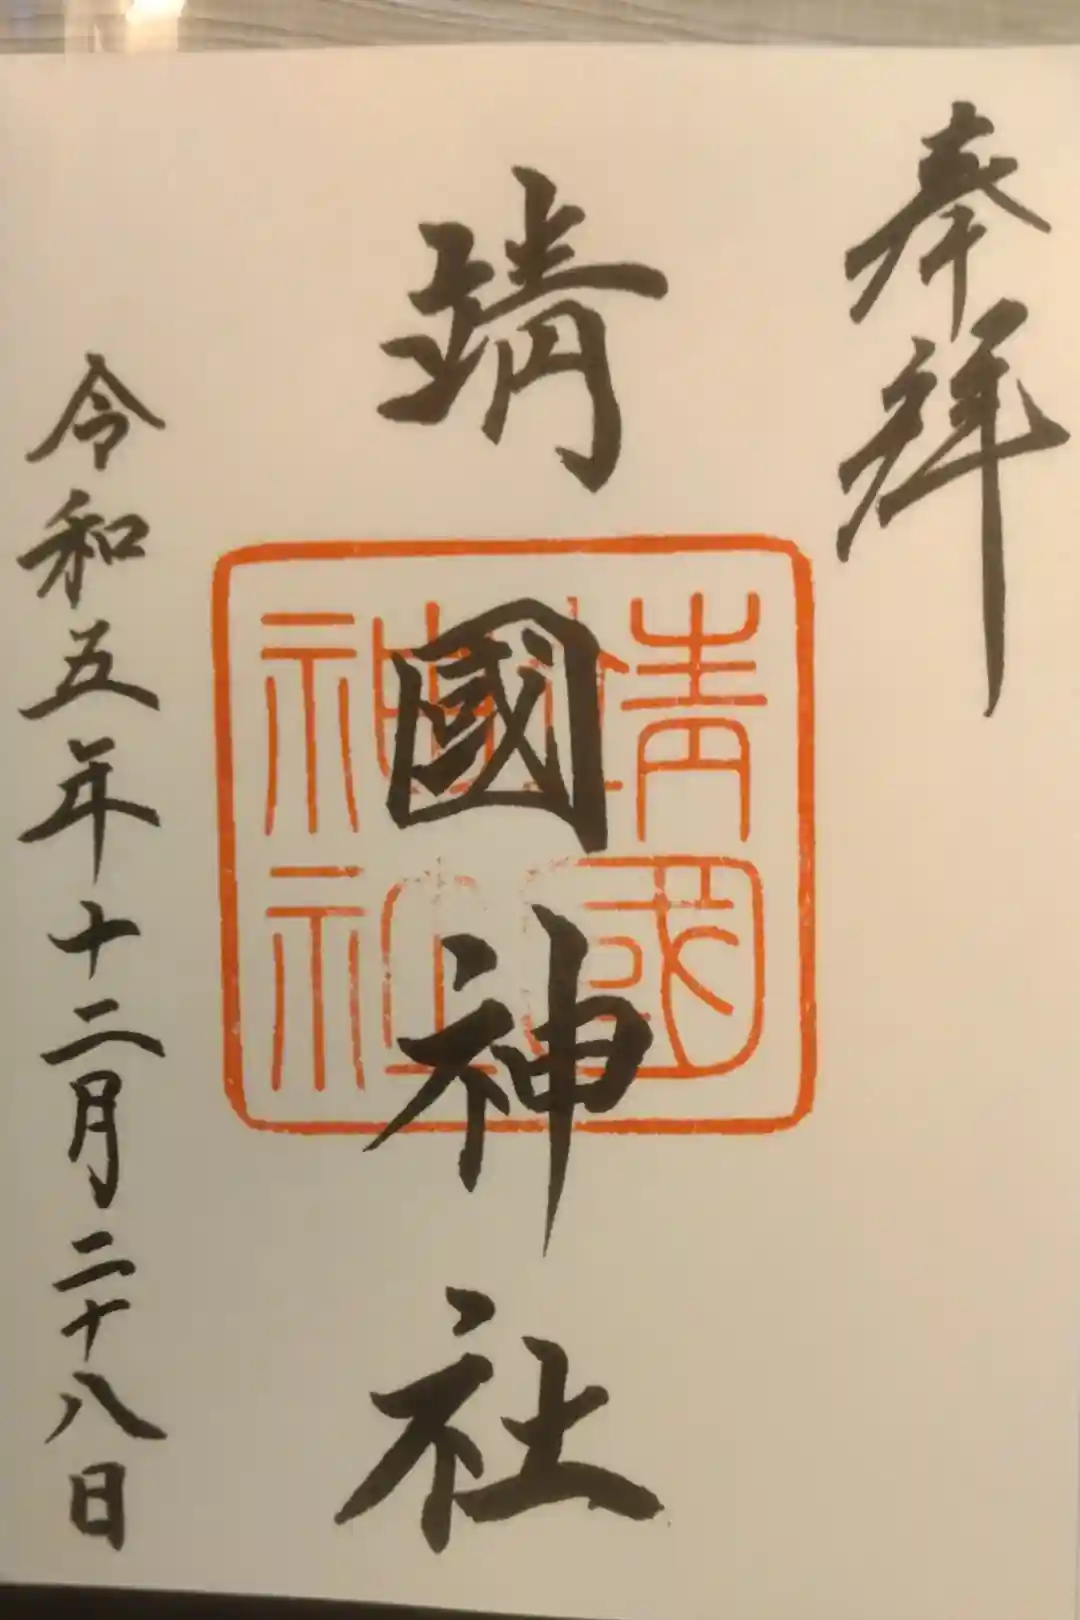 奉拜
靖國神社
靖國神社
令和五年十二月二十八日